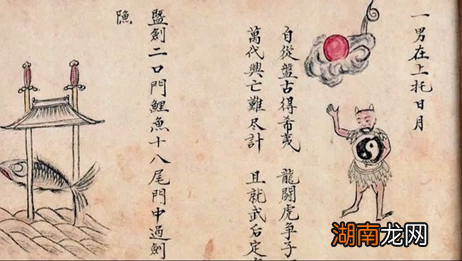 一男在上托日月
自從盤古得希夷 龍鬪虎争子
萬代興亡難尽計 且就武后定
竪劍二口門鯉魚十八尾門中過劍
湖南龙网